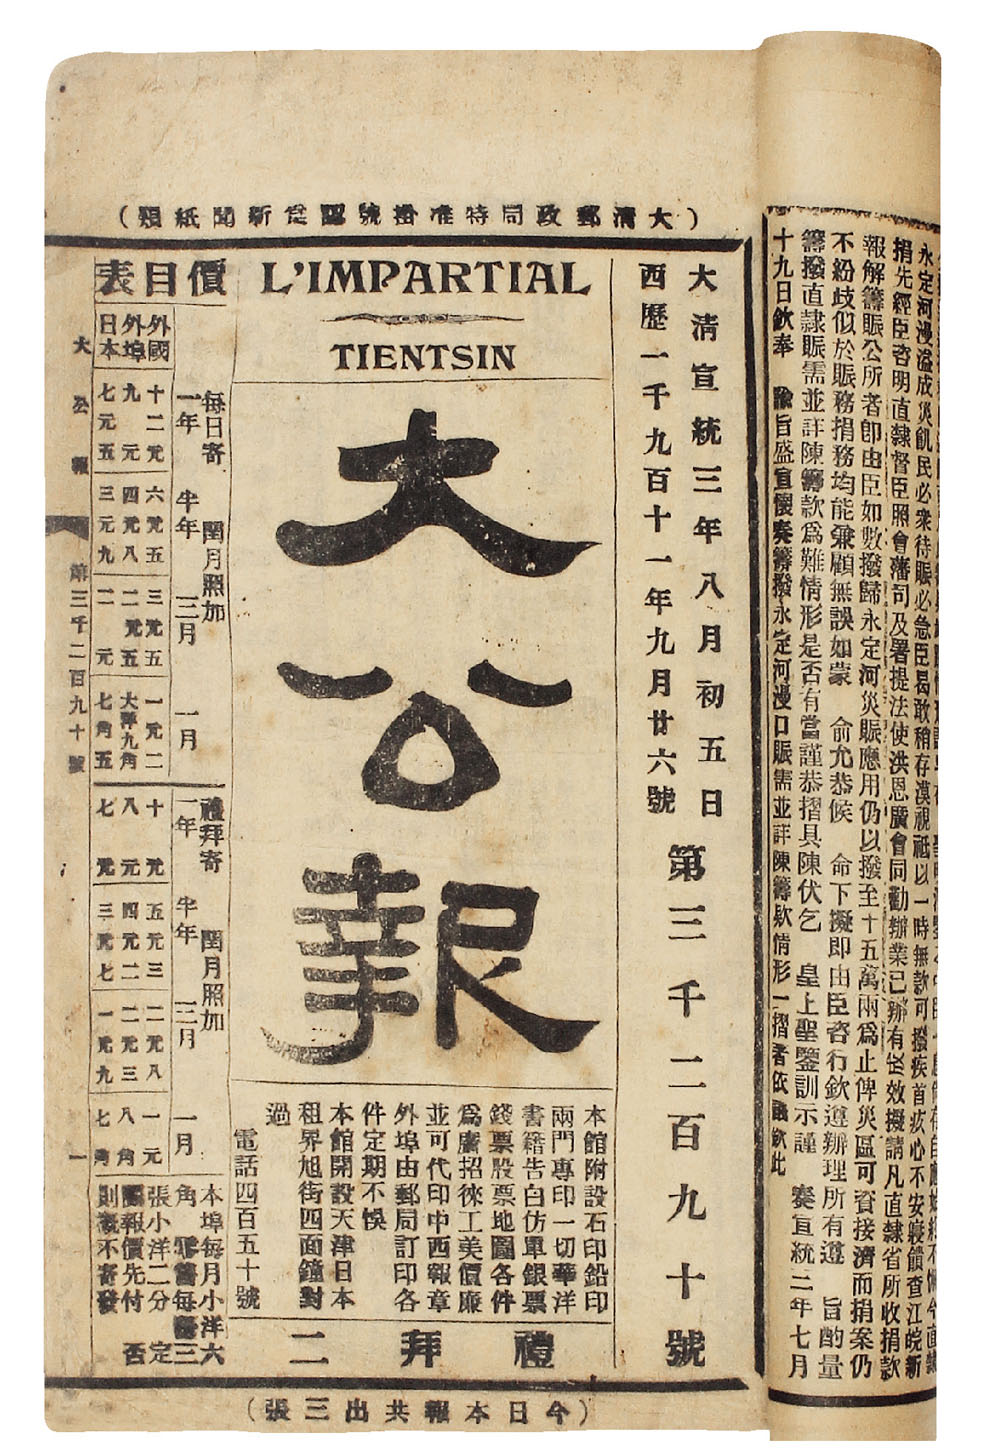 (大清郵政局特准掛號認爲新聞紙類)
永定河漫溢成災飢民必衆待賑必急臣曷敢稍存漠視祗以一時無款可撥疾首疚心不安寢饋查江皖新
捐先經臣咨明直隸督臣照會藩司及署提法使洪恩廣會同勸辦業已辦有成效擬請凡直隸省所收捐款
報解籌賑公所者卽由臣如數撥歸永定河災賑應用仍以撥至十五萬兩爲止俾災區可資接濟而捐案仍
不紛歧似於賑務捐務均能兼顧無誤如蒙 俞允恭候 命下擬即由臣咨行欽遵辦理所有遵 旨酌量
籌撥直隸賑需並詳陳籌款爲難情形是否有當謹恭摺具陳伏乞 皇上聖鑒訓示謹 奏宣統三年七月
十九日欽奉 諭旨盛宣懷奏籌撥永定河漫口賑需並詳陳籌欵情形一摺著依議欽此
大清宣統三年八月初五日
西歷一千九百十一年九月廿六號
第三千二百九十號
L'IMPARTIAL
TIENTSIN
大公報
本館附設石印鉛印
兩門專印一切華洋
書籍告白仿單銀票
錢票股票地圖各件
爲廣招徠工美價廉
並可代印中西報章
外埠由郵局訂印各
件定期不悞
本館開設天津日本
租界旭街四面鐘對
過
電話四百五十號
禮拜二
價目表
外國
外埠
日本
每日寄 閏月照加
一年 半年 三月 一月
十二元 六元五 三元五 一元二
九元 四元八 二元五 大洋九角
七元五 三元九 二元 七角五
禮拜寄 閏月照加
一年 半年 三月 一月
十元 五元三 二元八 一元
八元 四元二 二元三 八角
七元 三元七 一元九 七角
本埠每月小洋六
角 零售每張三
張小洋二分 定
閱報價先付 否
則概不寄發
大公報 第三千二百九十號 一
(今日本報共出三張)